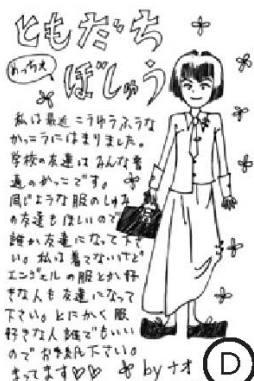 ともだち
めっちゃ
ぼしゅう
私は最近こうゆうふうな
かっこうにはまりました。
学校の友達はみんな普
通のかっこです。
同じような服のしゅみ
の友達もほしいので
誰か友達になって下さ
い。私は着てないけど
エンジェルの服とか好
きな人も友達になって
下さい。とにかく服
好きな人誰でもいい
のでお手紙下さい。
まってます♡♡
by ナオ
D